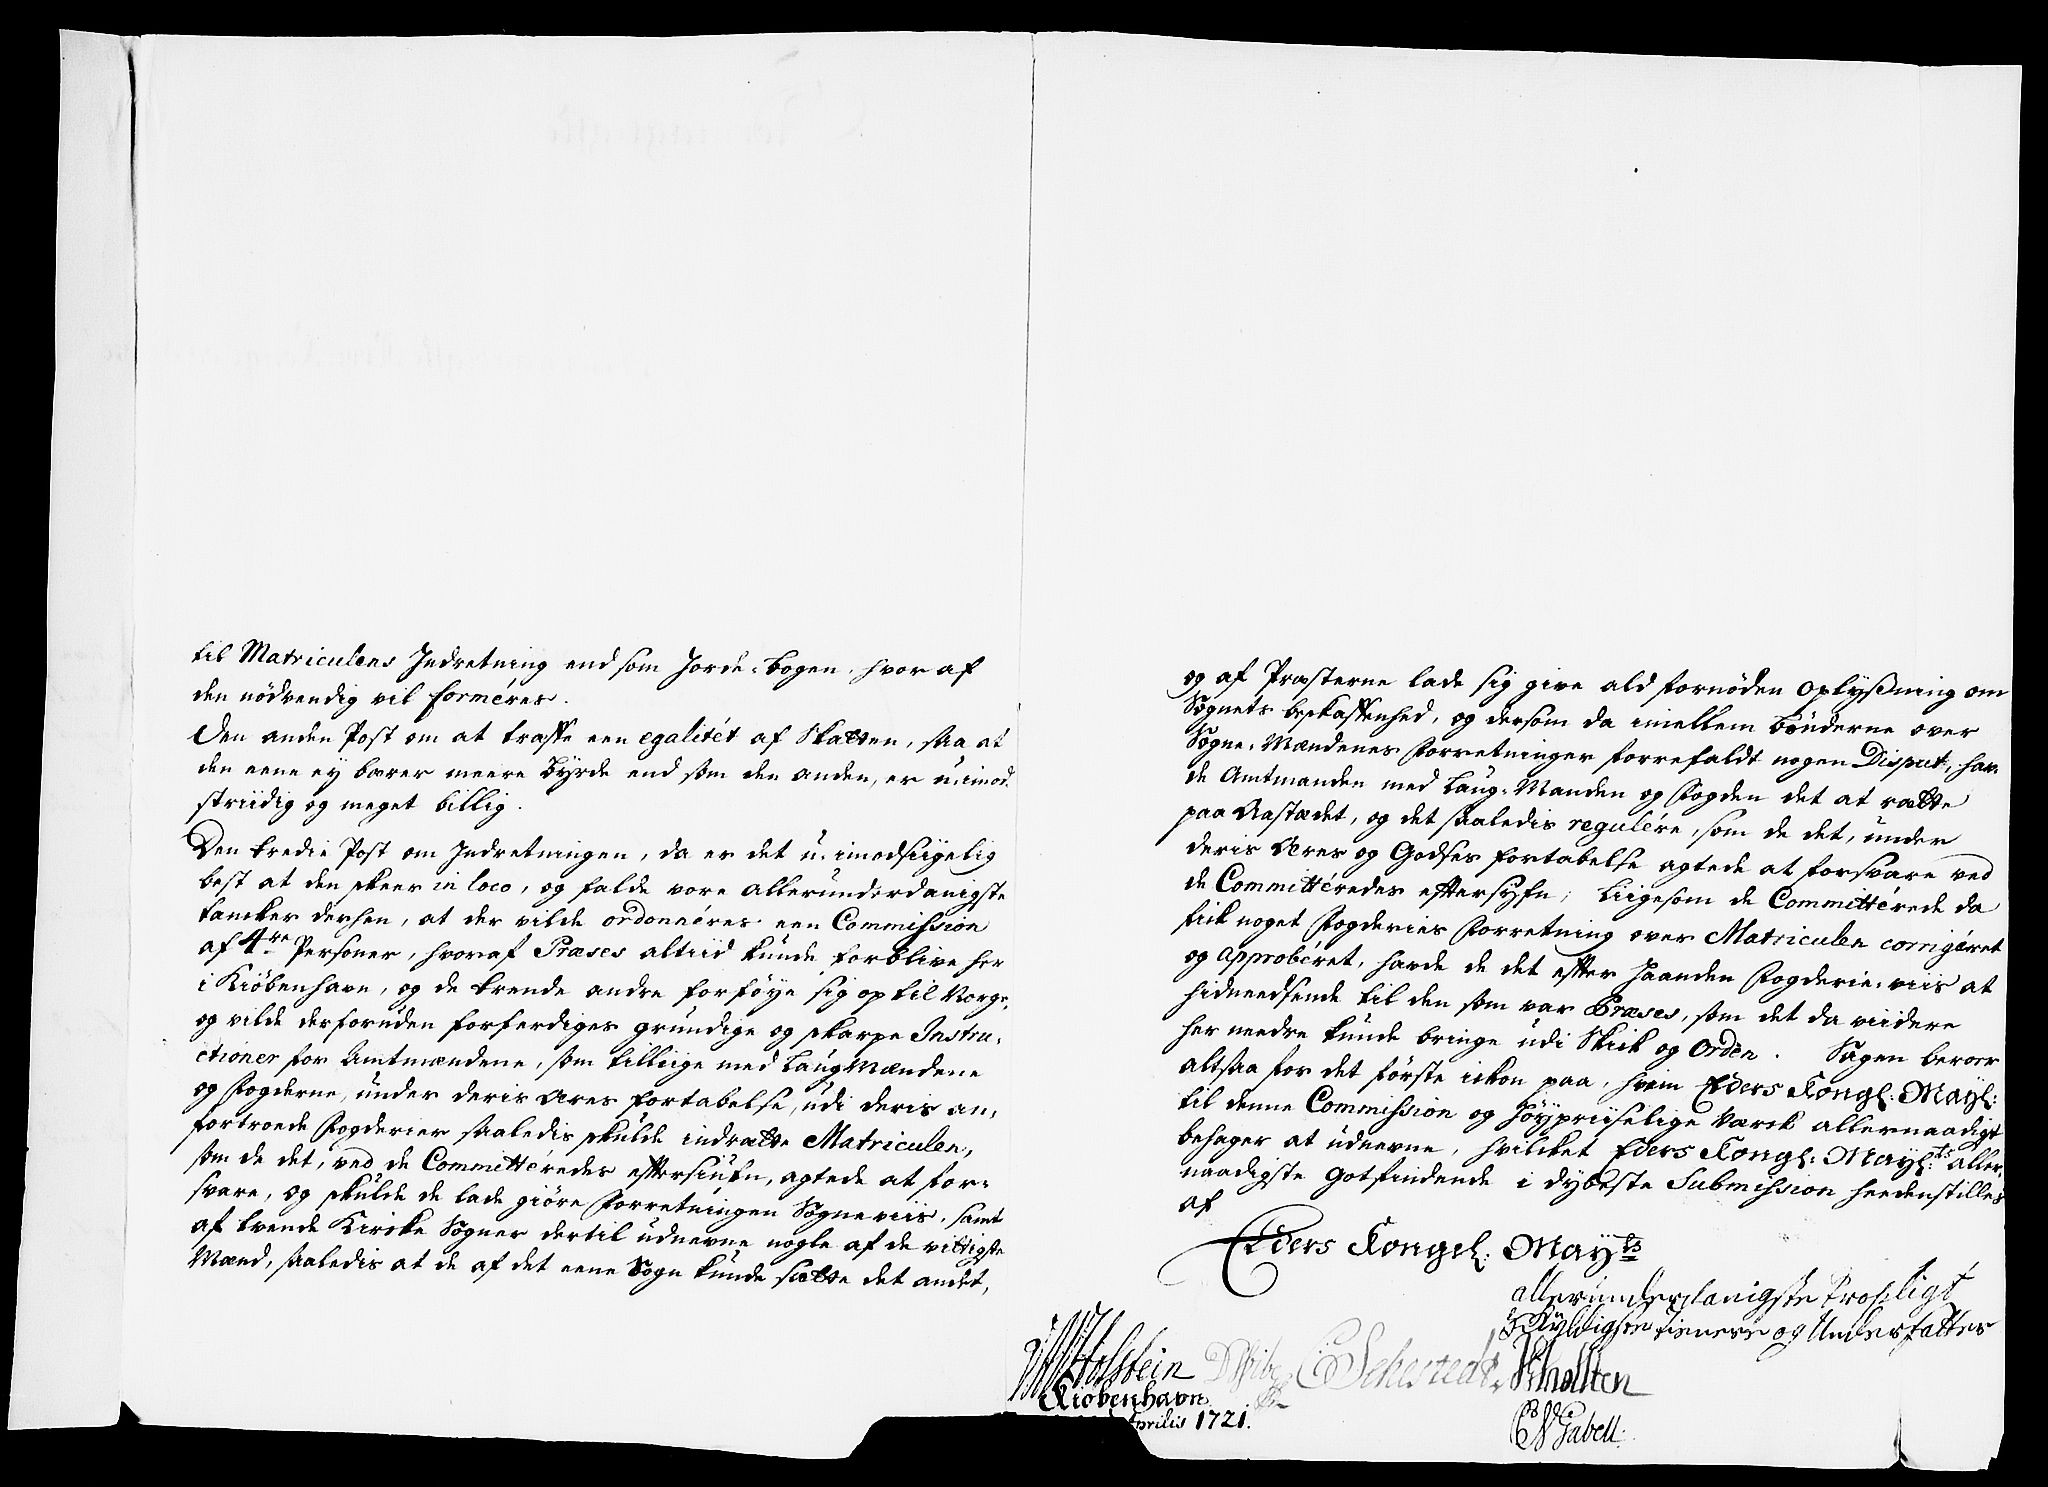 til Matriculens Indretning end som Jorde-bogen, hvor af
den nödvendig vil forméres.
Den anden Post om at træffe een egalitét af Skatten, saa at
den eene ey bærer meere Byrde end som den anden, er uimod-
striidig og meget billig.
Den tredie Post om Indretningen, da er det u-imodsiigelig
best at den skeer in loco, og falde vore allerunderdanigste
tancker derhen, at der vilde ordonnéres een Commission
af 4re Personer, hvoraf Præses altiid kunde forblive her
i Kiöbenhavn, og de trende andre forföye sig op til Norge,
og vilde derforuden forferdiges grundige og skarpe Instru-
ctioner for Amtmændene, som tilliige med Laugmændene
og Fogderne, under deris Æres fortabelse, udi deris an-
fortroede Fogderier saaledis skulde indrætte Matriculen,
som de det, ved de Committéredes eftersiufn, agtede at for-
svare, og skulde de lade giöre Forretningen Sogneviis, samt
af tvende Kircke Sogner dertil udnevne nogle af de vittigste
Mænd, saaledis at de af det eene Sogn kunde sætte det andet,
og af Præsterne lade sig give ald fornöden Oplysning om
Sognets beskaffenhed, og dersom da imellem bönderne over
Sogne-Mændenes Forretninger forrefaldt nogen Disput, hav-
de Amtmanden med Laug-Manden og Fogden det at rætte
paa Aastædet, og det saaledis regulére, som de det, under
deris Ære og Godses fortabelse agtede at forsvare ved
de Committéredes eftersyfn; Liigesom de Committérede da
fick noget Fogderies Forretning over Matriculen corrigéret
og approbéret, havde de det efter haanden Fogderie-viis at
hidneedsende til den som var Præses, som det da viidere
her needre kunde bringe udi Skick og Orden. Sagen beroer
altsaa for det förste ickon paa, hvem Eders Kongl: Mayt:
til denne Commission og höypriiselige Værck allernaadigst
behager at udnevne, hvilcket Eders Kongl: Mayts: aller-
naadigste Gotfindende i dybeste Submission heedenstilles
af
Eders Kongel: Mayts
allerunderdanigste troepligt
skyldigste tienere og Undersatter
Holstein DWibe CSehestedt VScholten
Kiöbenhavn
Aprilis 1721.
CNGabell: